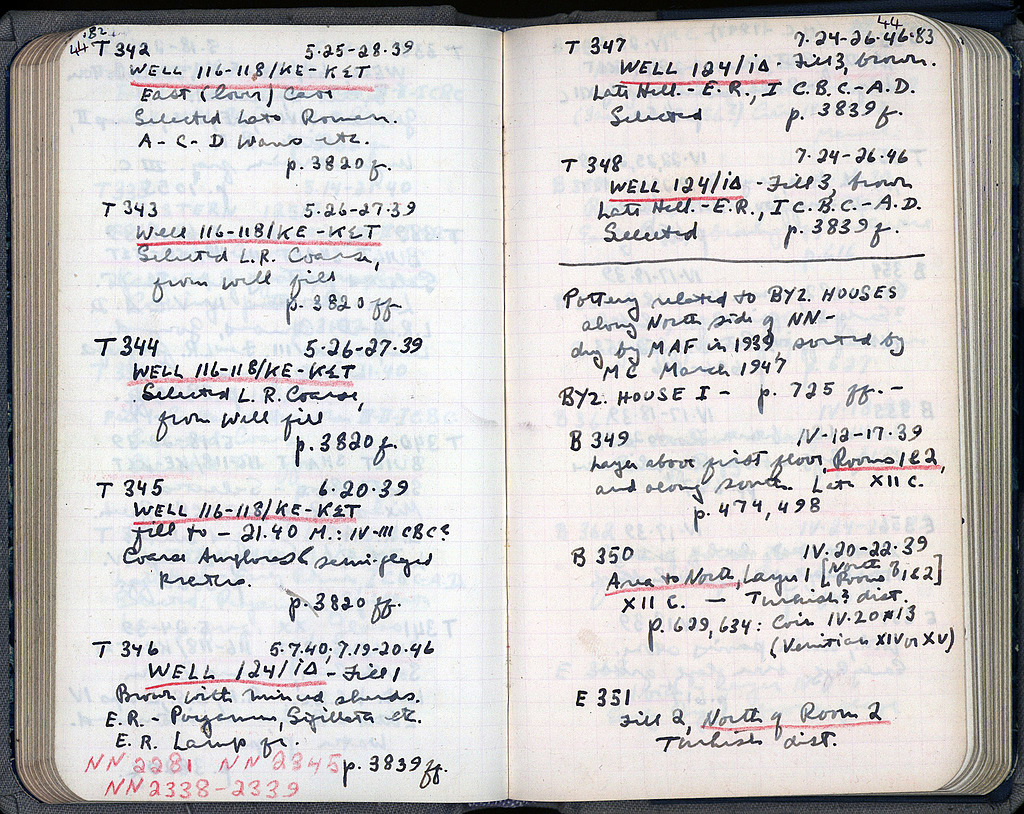 .82.
44 T 342 5·25-28·39
WELL 116-118/ΚΕ-ΚΣΤ
East (lower) Cave
Selected Late Roman.
A-C-D Wares etc.
p. 3820 f.
T 343 5·26-27·39
Well 116-118/ΚΕ-ΚΣΤ
Selected L.R. Coarse,
from well fill
p. 3820 ff
T 344 5·26-27·39
WELL 116-118/ΚΕ-ΚΣΤ
Selected L.R. Coarse,
from well fill
p. 3820 f.
T 345 6·20·39
WELL 116-118/ΚΕ-ΚΣΤ
fill to - 21.40 M.: IV-III CBC?
Coarse Amphoras & semi-glazed
kraters.
p. 3820 ff.
T 346 5·7·40, 7·19-20·46
WELL 124/ΙΔ - Fill 1
Brown with mixed sherds.
E.R. - Pergamene, Sigillata etc.
E.R. Lamp fr.
NN 2281 NN 2345 p. 3839 ff.
NN 2338-2339
44
T 347 7·24-26·46·83
WELL 124/ΙΔ - Fill 3, brown.
Late Hell. - E.R., I C. B.C. - A.D.
Selected p. 3839 f.
T 348 7·24-26·46
WELL 124/ΙΔ - Fill 3, brown
Late Hell. - E.R., I C. B.C. - A.D.
Selected p. 3839 f.
Pottery related to BYZ. HOUSES
along North side of NN -
dug by MAF in 1939, sorted by
MC March 1947
BYZ. HOUSE I - p. 725 ff. -
B 349 IV·12-17·39
Layer above first floor, Rooms 1&2,
and along south. Late XII C.
p. 474, 498
B 350 IV·20-22·39
Area to North, Layer 1 [North of Rooms 1&2]
XII C. - Turkish? dist.
p. 629, 634: Coin IV·20 #13
(Venitian XIV or XV)
E 351
Fill 2, North of Room 2
Turkish dist.